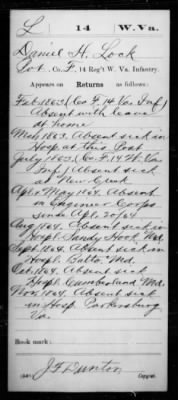 L | 14 | W. Va.
Daniel H. Lock
Pvt., Co. F, 14 Reg't W. Va. Infantry.
Appears on Returns as follows:
Feb. 1863, (Co. F. 14 W. Va.
Inf.) Absent with leave
at home
May 1863. Absent sick in
Hosp at this Post
July 1863, (Co F. 14 W. Va
Inf) Absent sick
at New Creek
Apl. & May 1864. Absent
in Engineer Corps
since Apl. 20/64
Aug 1864. Absent sick in
Hospl. Sandy Hook Md.
Sept 1864. Absent sick in
Hospl. Balto. Md.
Oct. 1864. Absent sick
Hospl Cumberland Md.
Nov. 1864. Absent sick
in Hosp. Parkersburg
Va.
Book mark:
J F Dunton
Copyist.